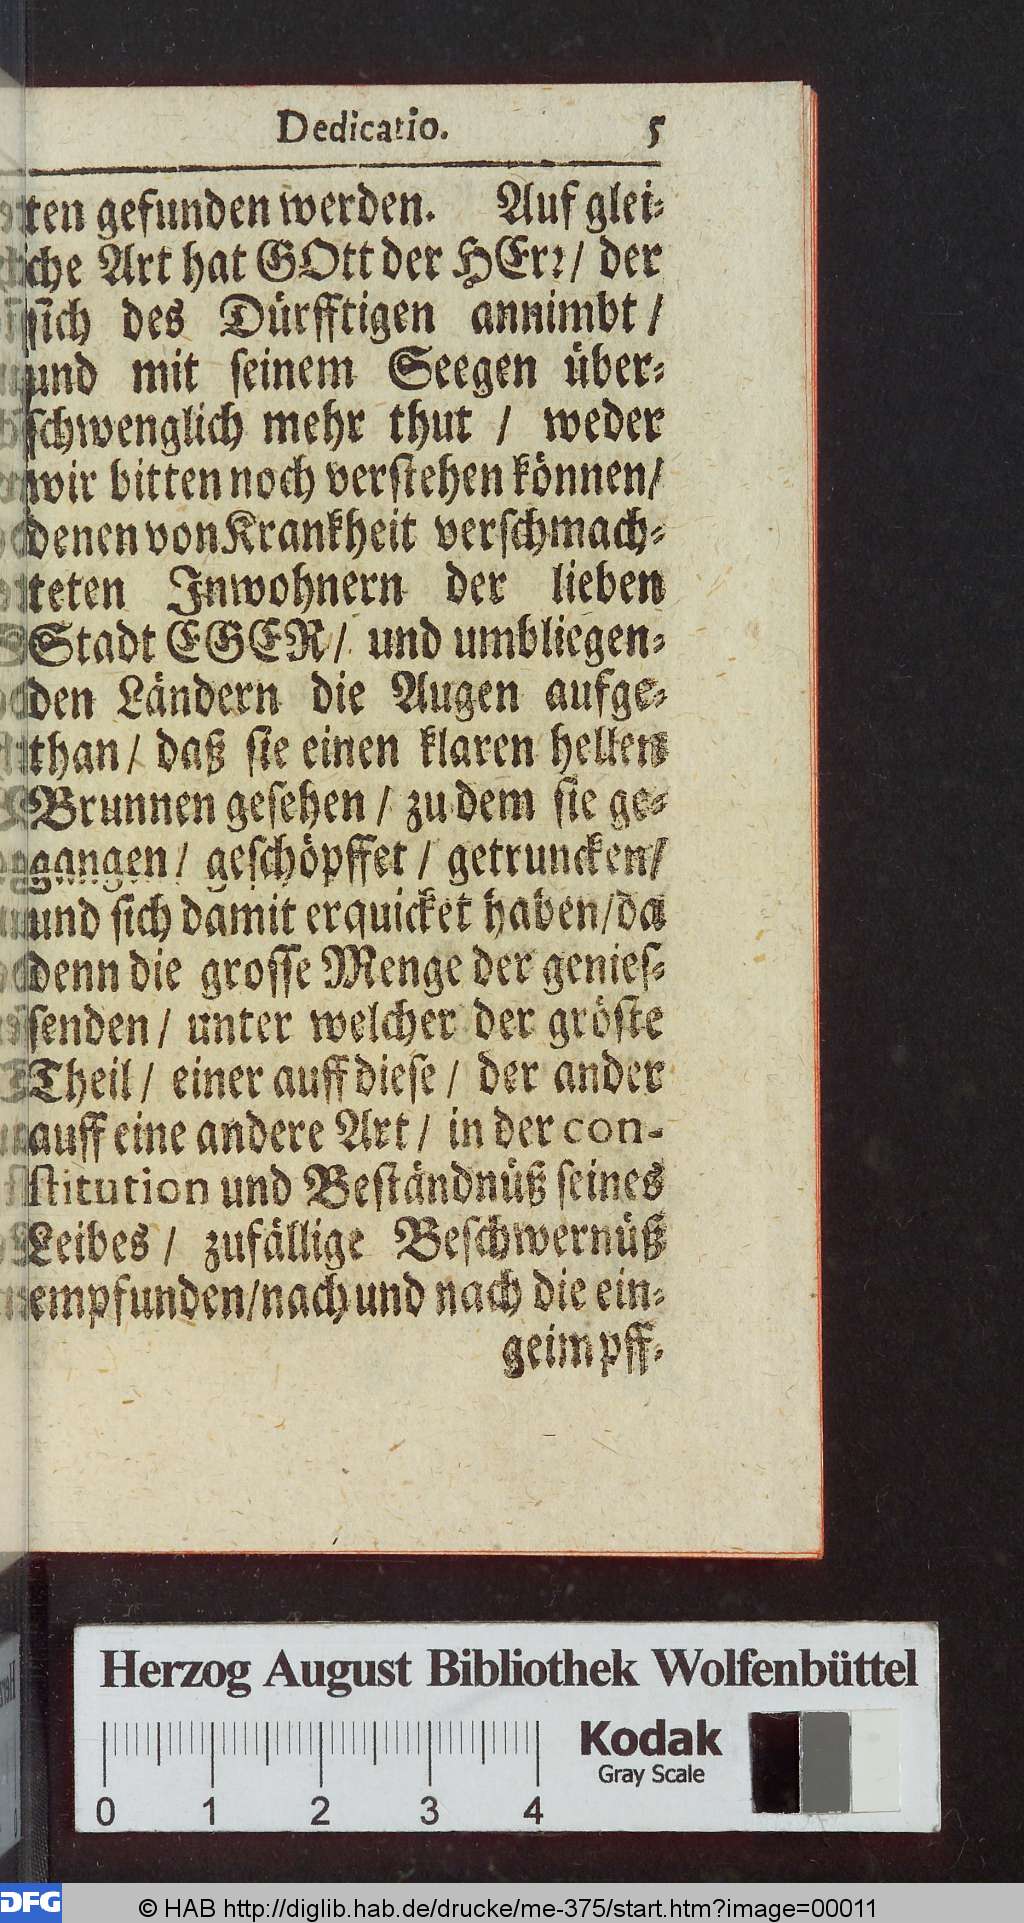 Dedicatio. 5
ten gefunden werden. Auf glei-
che Art hat GOtt der HErr/ der
sich des Dürfftigen annimbt /
und mit seinem Seegen über-
schwenglich mehr thut / weder
wir bitten noch verstehen können/
denen von Krankheit verschmach-
teten Inwohnern der lieben
Stadt EGER/ und umbliegen-
den Ländern die Augen aufge-
than/ daß sie einen klaren hellen
Brunnen gesehen / zu dem sie ge-
gangen/ geschöpffet / getruncken/
und sich damit erquicket haben/da
denn die grosse Menge der genies-
senden/ unter welcher der gröste
Theil/ einer auff diese / der ander
auff eine andere Art/ in der con-
stitution und Beständnüß seines
Leibes / zufällige Beschwernüß
empfunden/nach und nach die ein-
geimpff-
Herzog August Bibliothek Wolfenbüttel
Kodak
Gray Scale
0 1 2 3 4
DFG © HAB http://diglib.hab.de/drucke/me-375/start.htm?image=00011